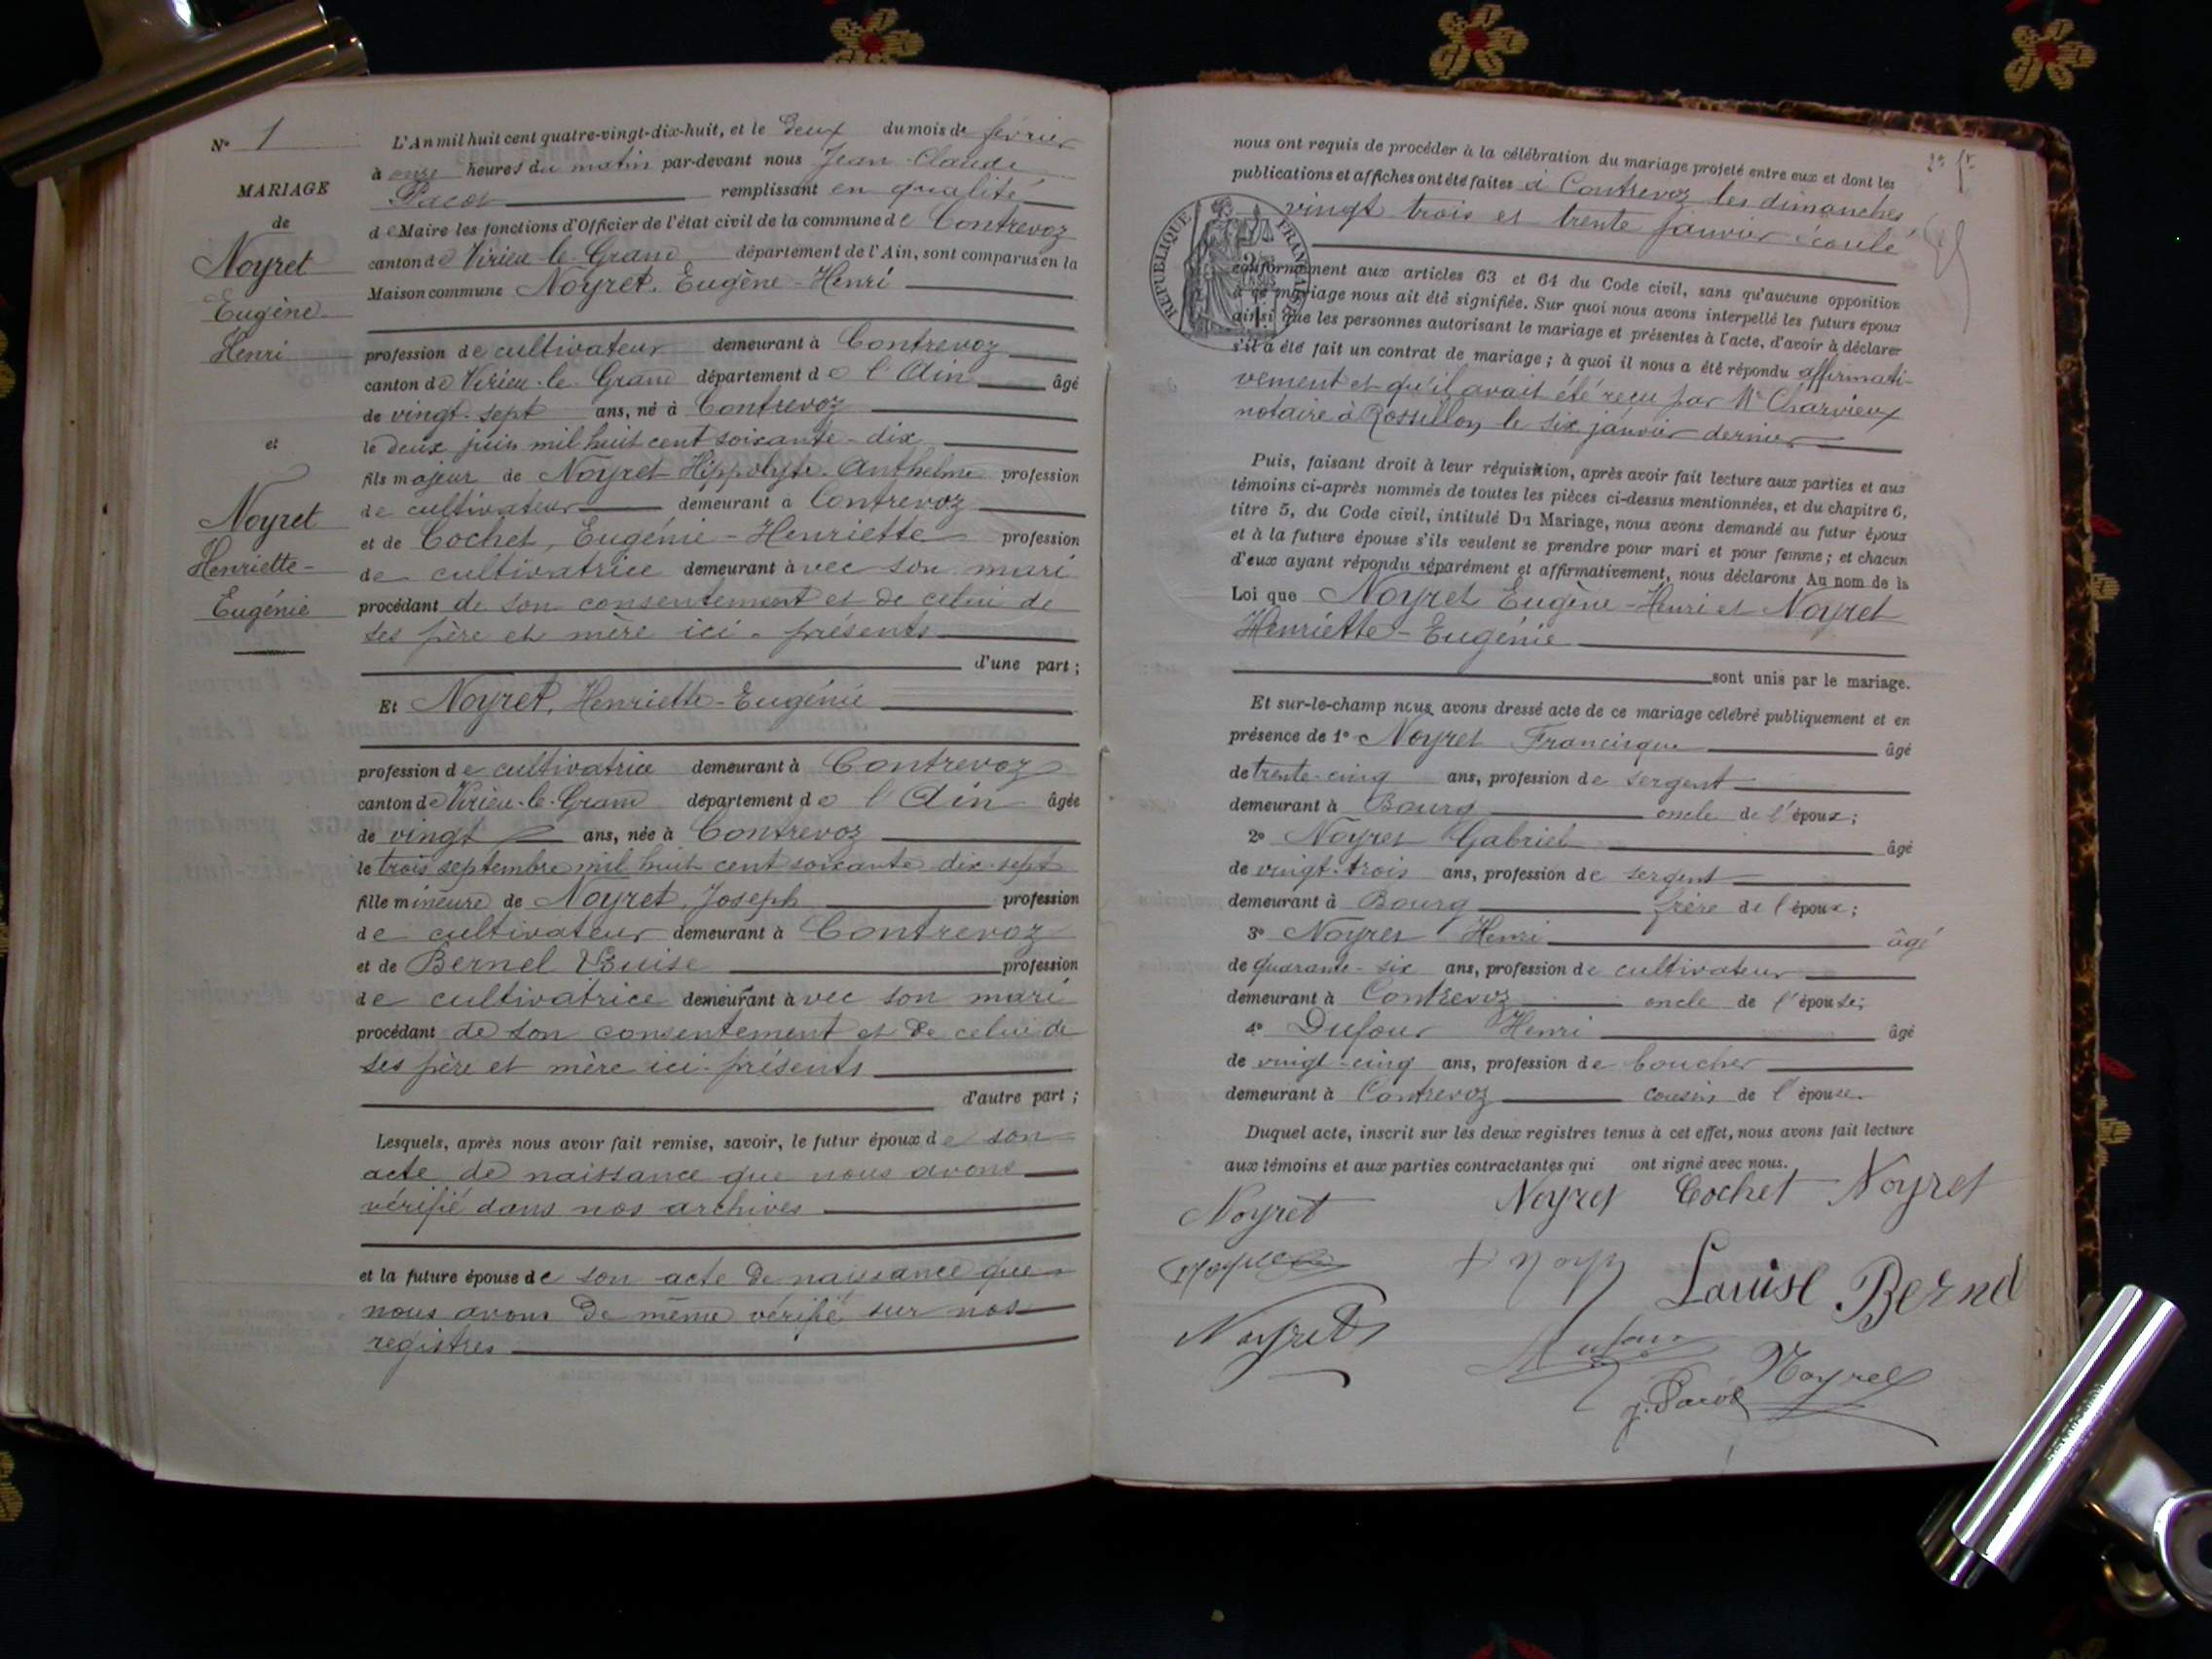 N° 1
MARIAGE
de
Noyret
Eugène
Henri
et
Noyret
Henriette-
Eugénie
L'An mil huit cent quatre-vingt-dix-huit, et le deux du mois de février
à onze heures du matin par-devant nous Jean-Claude
Pacot remplissant en qualité
de Maire les fonctions d'Officier de l'état civil de la commune de Contrevoz
canton de Virieu-le-Grand département de l'Ain, sont comparus en la
Maison commune Noyret Eugène-Henri
profession de cultivateur demeurant à Contrevoz
canton de Virieu-le-Grand département de l'Ain âgé
de vingt-sept ans, né à Contrevoz
le deux juin mil huit cent soixante-dix
fils majeur de Noyret Hippolyte-Anthelme profession
de cultivateur demeurant à Contrevoz
et de Cochet, Eugénie-Henriette profession
de cultivatrice demeurant avec son mari
procédant de son consentement et de celui de
ses père et mère ici-présents
d'une part ;
Et Noyret, Henriette-Eugénie
profession de cultivatrice demeurant à Contrevoz
canton de Virieu-le-Grand département de l'Ain âgée
de vingt ans, née à Contrevoz
le trois septembre mil huit cent soixante dix-sept
fille mineure de Noyret, Joseph profession
de cultivateur demeurant à Contrevoz
et de Bernel Louise profession
de cultivatrice demeurant avec son mari
procédant de son consentement et de celui de
ses père et mère ici-présents
d'autre part ;
Lesquels, après nous avoir fait remise, savoir, le futur époux de son
acte de naissance que nous avons
vérifié dans nos archives
et la future épouse de son acte de naissance que
nous avons de même vérifié sur nos
registres
nous ont requis de procéder à la célébration du mariage projeté entre eux et dont les
publications et affiches ont été faites à Contrevoz les dimanches
vingt trois et trente janvier écoulé
RÉPUBLIQUE FRANÇAISE
conformément aux articles 63 et 64 du Code civil, sans qu'aucune opposition
à ce mariage nous ait été signifiée. Sur quoi nous avons interpellé les futurs époux
ainsi que les personnes autorisant le mariage et présentes à l'acte, d'avoir à déclarer
s'il a été fait un contrat de mariage ; à quoi il nous a été répondu affirmati-
vement et qu'il avait été reçu par Me Charvieux
notaire à Rossillon, le six janvier dernier
Puis, faisant droit à leur réquisition, après avoir fait lecture aux parties et aux
témoins ci-après nommés de toutes les pièces ci-dessus mentionnées, et du chapitre 6,
titre 5, du Code civil, intitulé Du Mariage, nous avons demandé au futur époux
et à la future épouse s'ils veulent se prendre pour mari et pour femme ; et chacun
d'eux ayant répondu séparément et affirmativement, nous déclarons Au nom de la
Loi que Noyret Eugène-Henri et Noyret
Henriette-Eugénie
sont unis par le mariage.
Et sur-le-champ nous avons dressé acte de ce mariage célébré publiquement et en
présence de 1° Noyret Francisque âgé
de trente-cinq ans, profession de sergent
demeurant à Bourg oncle de l'époux ;
2° Noyret Gabriel âgé
de vingt-trois ans, profession de sergent
demeurant à Bourg frère de l'époux ;
3° Noyret Henri âgé
de quarante-six ans, profession de cultivateur
demeurant à Contrevoz oncle de l'épouse ;
4° Dufour Henri âgé
de vingt-cinq ans, profession de boucher
demeurant à Contrevoz cousin de l'épouse
Duquel acte, inscrit sur les deux registres tenus à cet effet, nous avons fait lecture
aux témoins et aux parties contractantes qui ont signé avec nous.
Noyret Noyret Cochet Noyret
Louise Bernel
Noyret
Dufour Noyret
J. Pacot